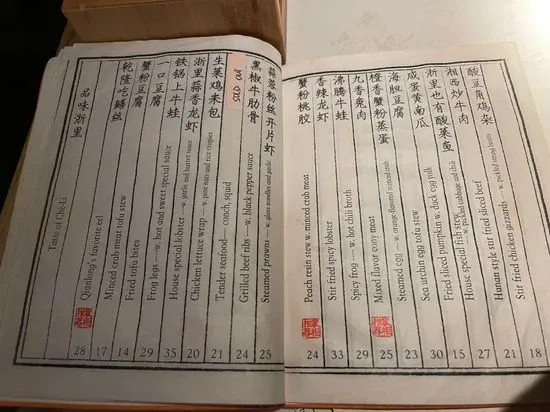 品味浙里
Taste of Che-Li
乾隆吃鳝丝
Qianlong's favorite eel
28
蟹粉豆腐
Minced crab meat tofu stew
17
一口豆腐
Fried tofu bites
14
铁锅上牛蛙
Frog legs — w. hot and sweet special sauce
29
浙里蒜香龙虾
House special lobster — w. garlic and butter sauce
35
生菜鸡米包
Chicken lettuce wrap — w. pine nuts and rice
20
Tender seafood — conch, squid
21
黑椒牛肋骨
Grilled beef ribs — w. black pepper sauce
24
蒜蓉粉丝开片虾
Steamed prawns — w. glass noodles and garlic
25
蟹粉桃胶
Peach resin stew w. minced crab meat
24
香辣龙虾
Stir fried spicy lobster
33
沸腾牛蛙
Spicy frog — w. hot chili broth
29
九香兔肉
Mixed flavor cony meat
25
橙香蟹粉蒸蛋
Steamed egg — w. orange flavored minced crab
23
海胆豆腐
Sea urchin egg tofu stew
30
咸蛋黄南瓜
Fried sliced pumpkin w. duck egg yulk
15
浙里也有酸菜鱼
House special fish stew — w. pickled cabbage and chili
27
湘西炒牛肉
Hunan style stir fried sliced beef
21
酸豆角鸡杂
Stir fried chicken gizzards — w. pickled string beans
18